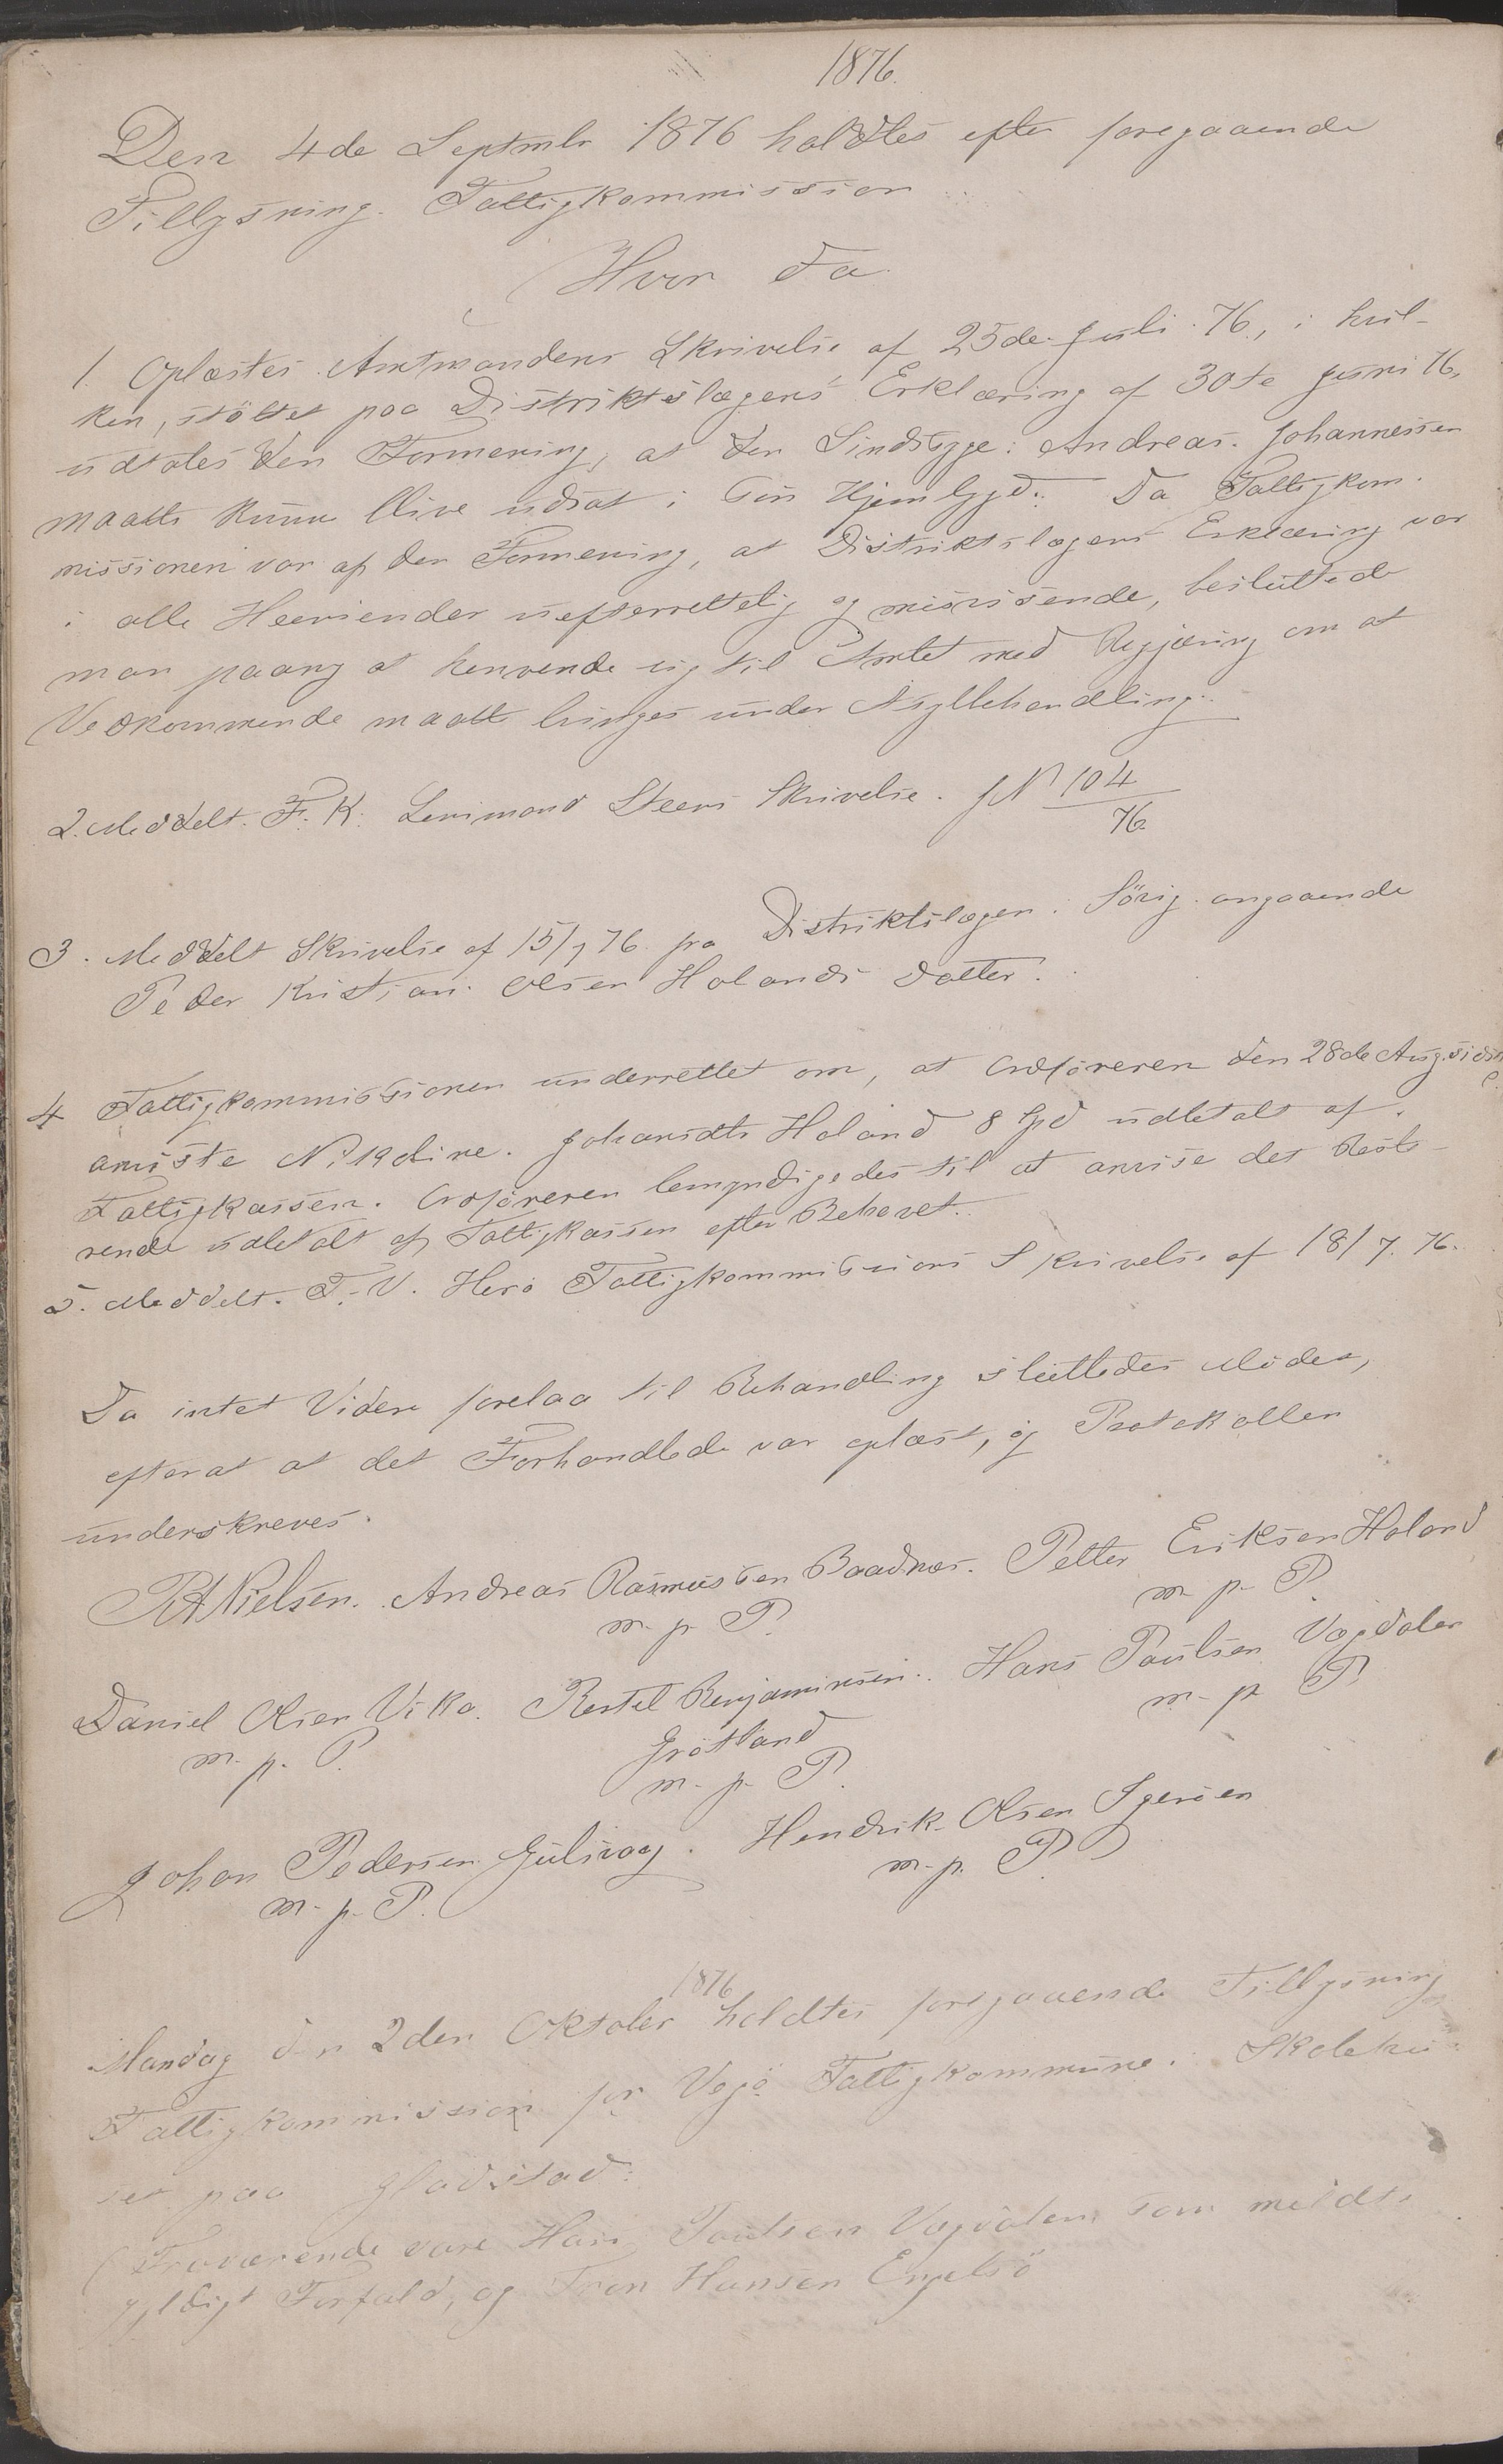 1876.
Den 4de Septmbr 1876 holdtes efter foregaaende
Tillysning. Fattigkommission
Hvor da
1. Oplæstes Amtmandens Skrivelse af 25de Juli 76, i hvil-
ken, støttet paa Distriktslægens Erklæring af 30te Juni 76,
udtales den Formening, at den Sindsyge: Andreas Johannessen
maatte kunne blive udsat i sin Hjembygd. Da Fattigkom-
missionen var af den Formening, at Distriktslægens Erklæring var
i alle Henseender uefterrettelig og misvisende, besluttede
man paany at henvende sig til Amtet med Begjæring om at
Vedkommende maatte bringes under Asylbehandling.
2. Meddelt F. K. Lensmand Steens Skrivelse. JN 104/76
3. Meddelt Skrivelse af 15/7 76 fra Distriktslægen i angaaende
Peder Kristian Olsen Holands Datter.
4 Fattigkommissionen underrettet om, at Ordføreren den 28de Aug. sidst
anviste Nikoline Johansdtr Holand 8 Spd udbetalt af
Fattigkassen. Ordføreren bemyndigedes til at anvise det Reste-
rende udbetalt af Fattigkassen efter Behovet.
5. Meddelt. T. V. Herø Fattigkommissions Skrivelse af 18/7. 76.
Da intet Videre forelaa til Behandling sluttedes Mødet,
efterat at det Forhandlede var oplæst, og Protokollen
underskreves.
Nielsen. Andreas Rasmussen Baadnæs. Petter Eriksen Holand
m. p. P. m. p. P.
Daniel Olsen Vika. Bentel Benjaminsen. Hans Paulsen Vagdalen
m. p. P. Grøtland m. p. P.
m. p. P.
Johan Pedersen Gulsvag. Hendrik Olsen
m. p. P. m. p. P.
1876
Mandag den 2den Oktober holdtes foregaaende Tillysning
Fattigkommission for Vegø Fattigkommune i Skolehu-
set paa Gladstad.
Fraværende vare Hans Paulsen Vagdalen som meldte
gyldigt Forfald, og Hansen